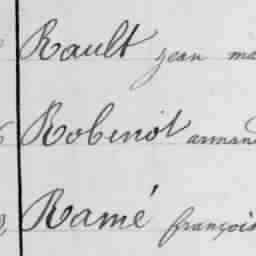 Rault jean ma
Robinot armand
Ramé françois